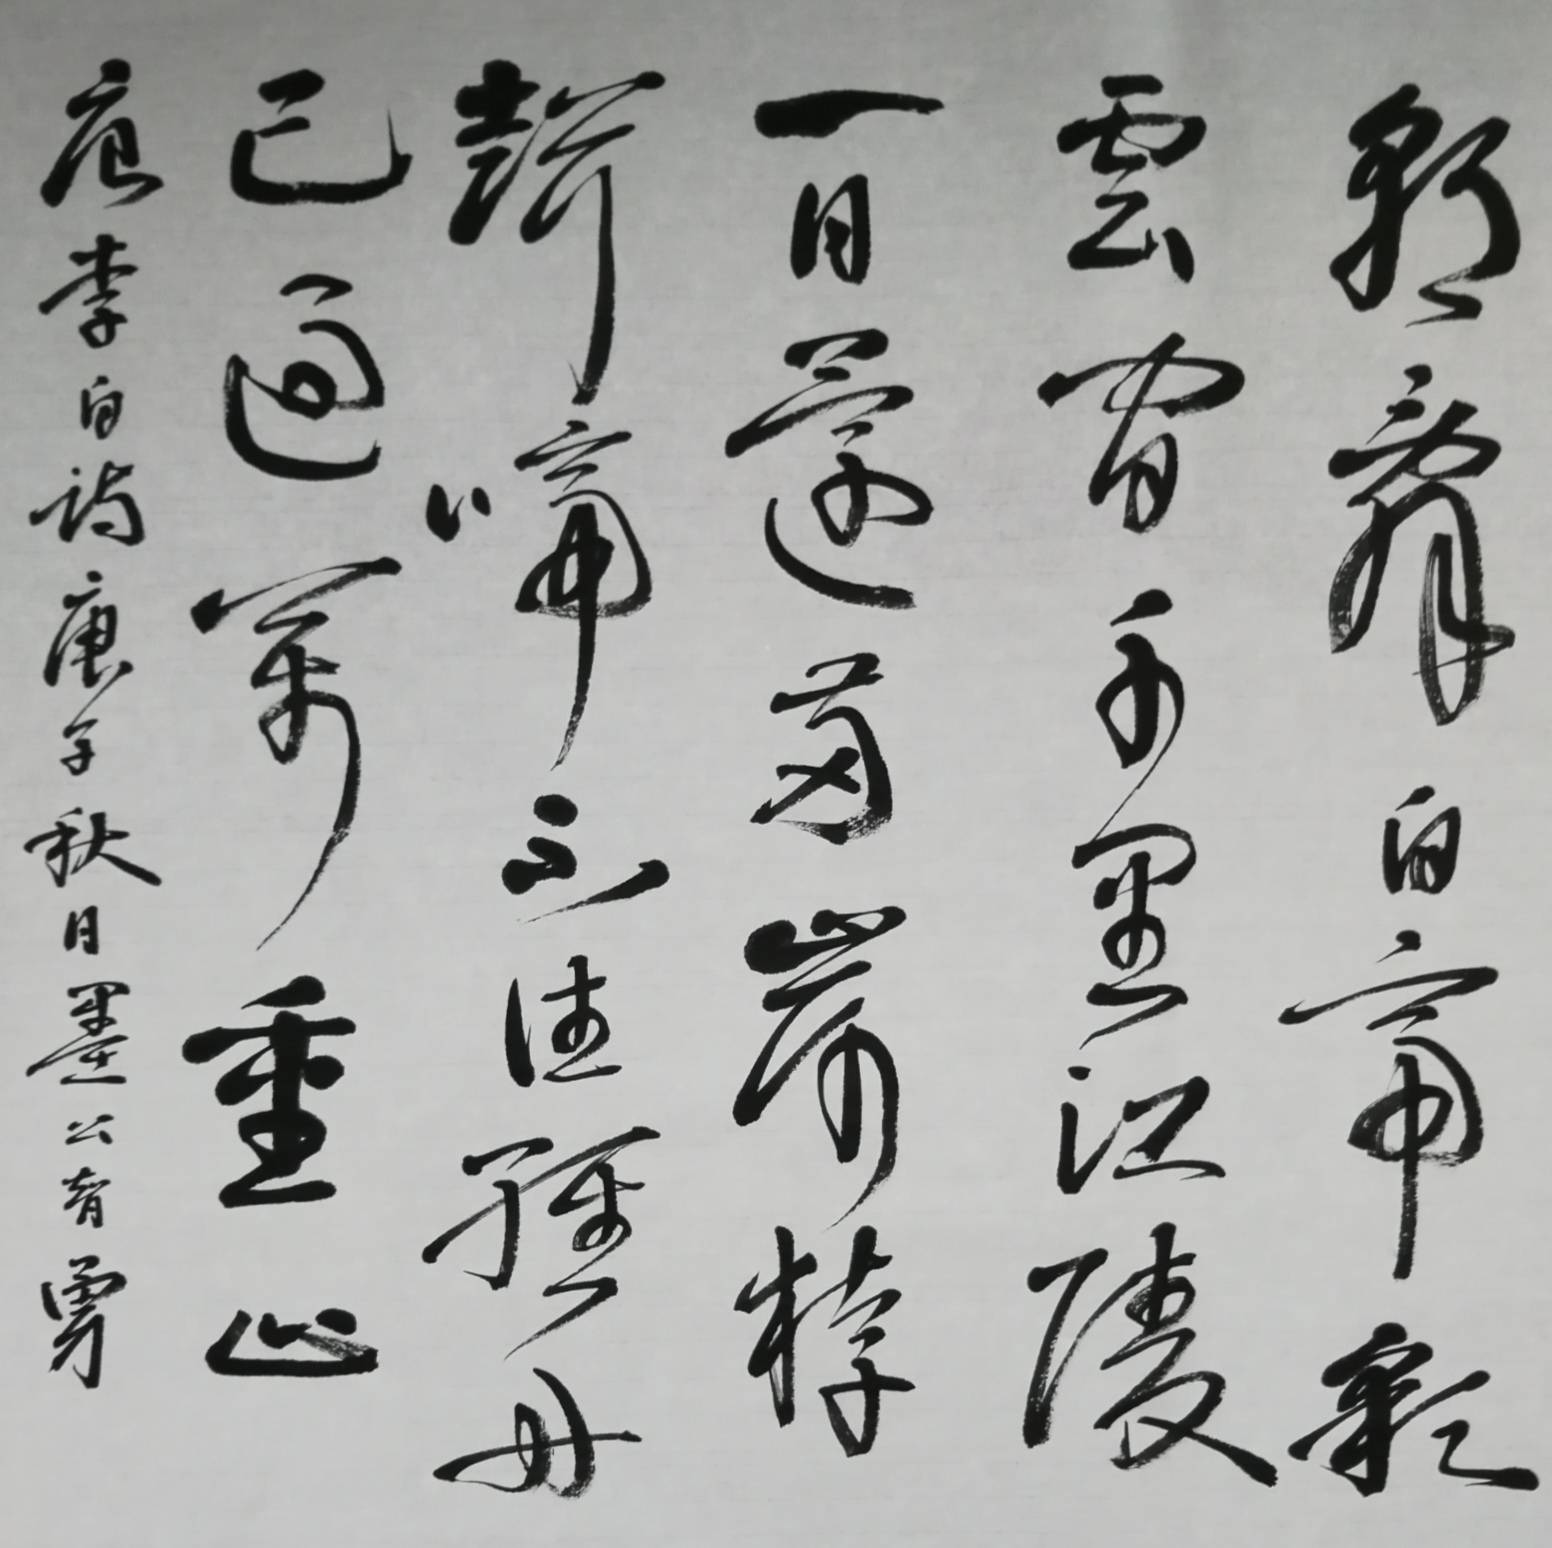 朝辭白帝彩
雲間千里江陵
一日還兩岸猿
聲啼不住輕舟
已過萬重山
唐李白詩庚子秋月墨公勇